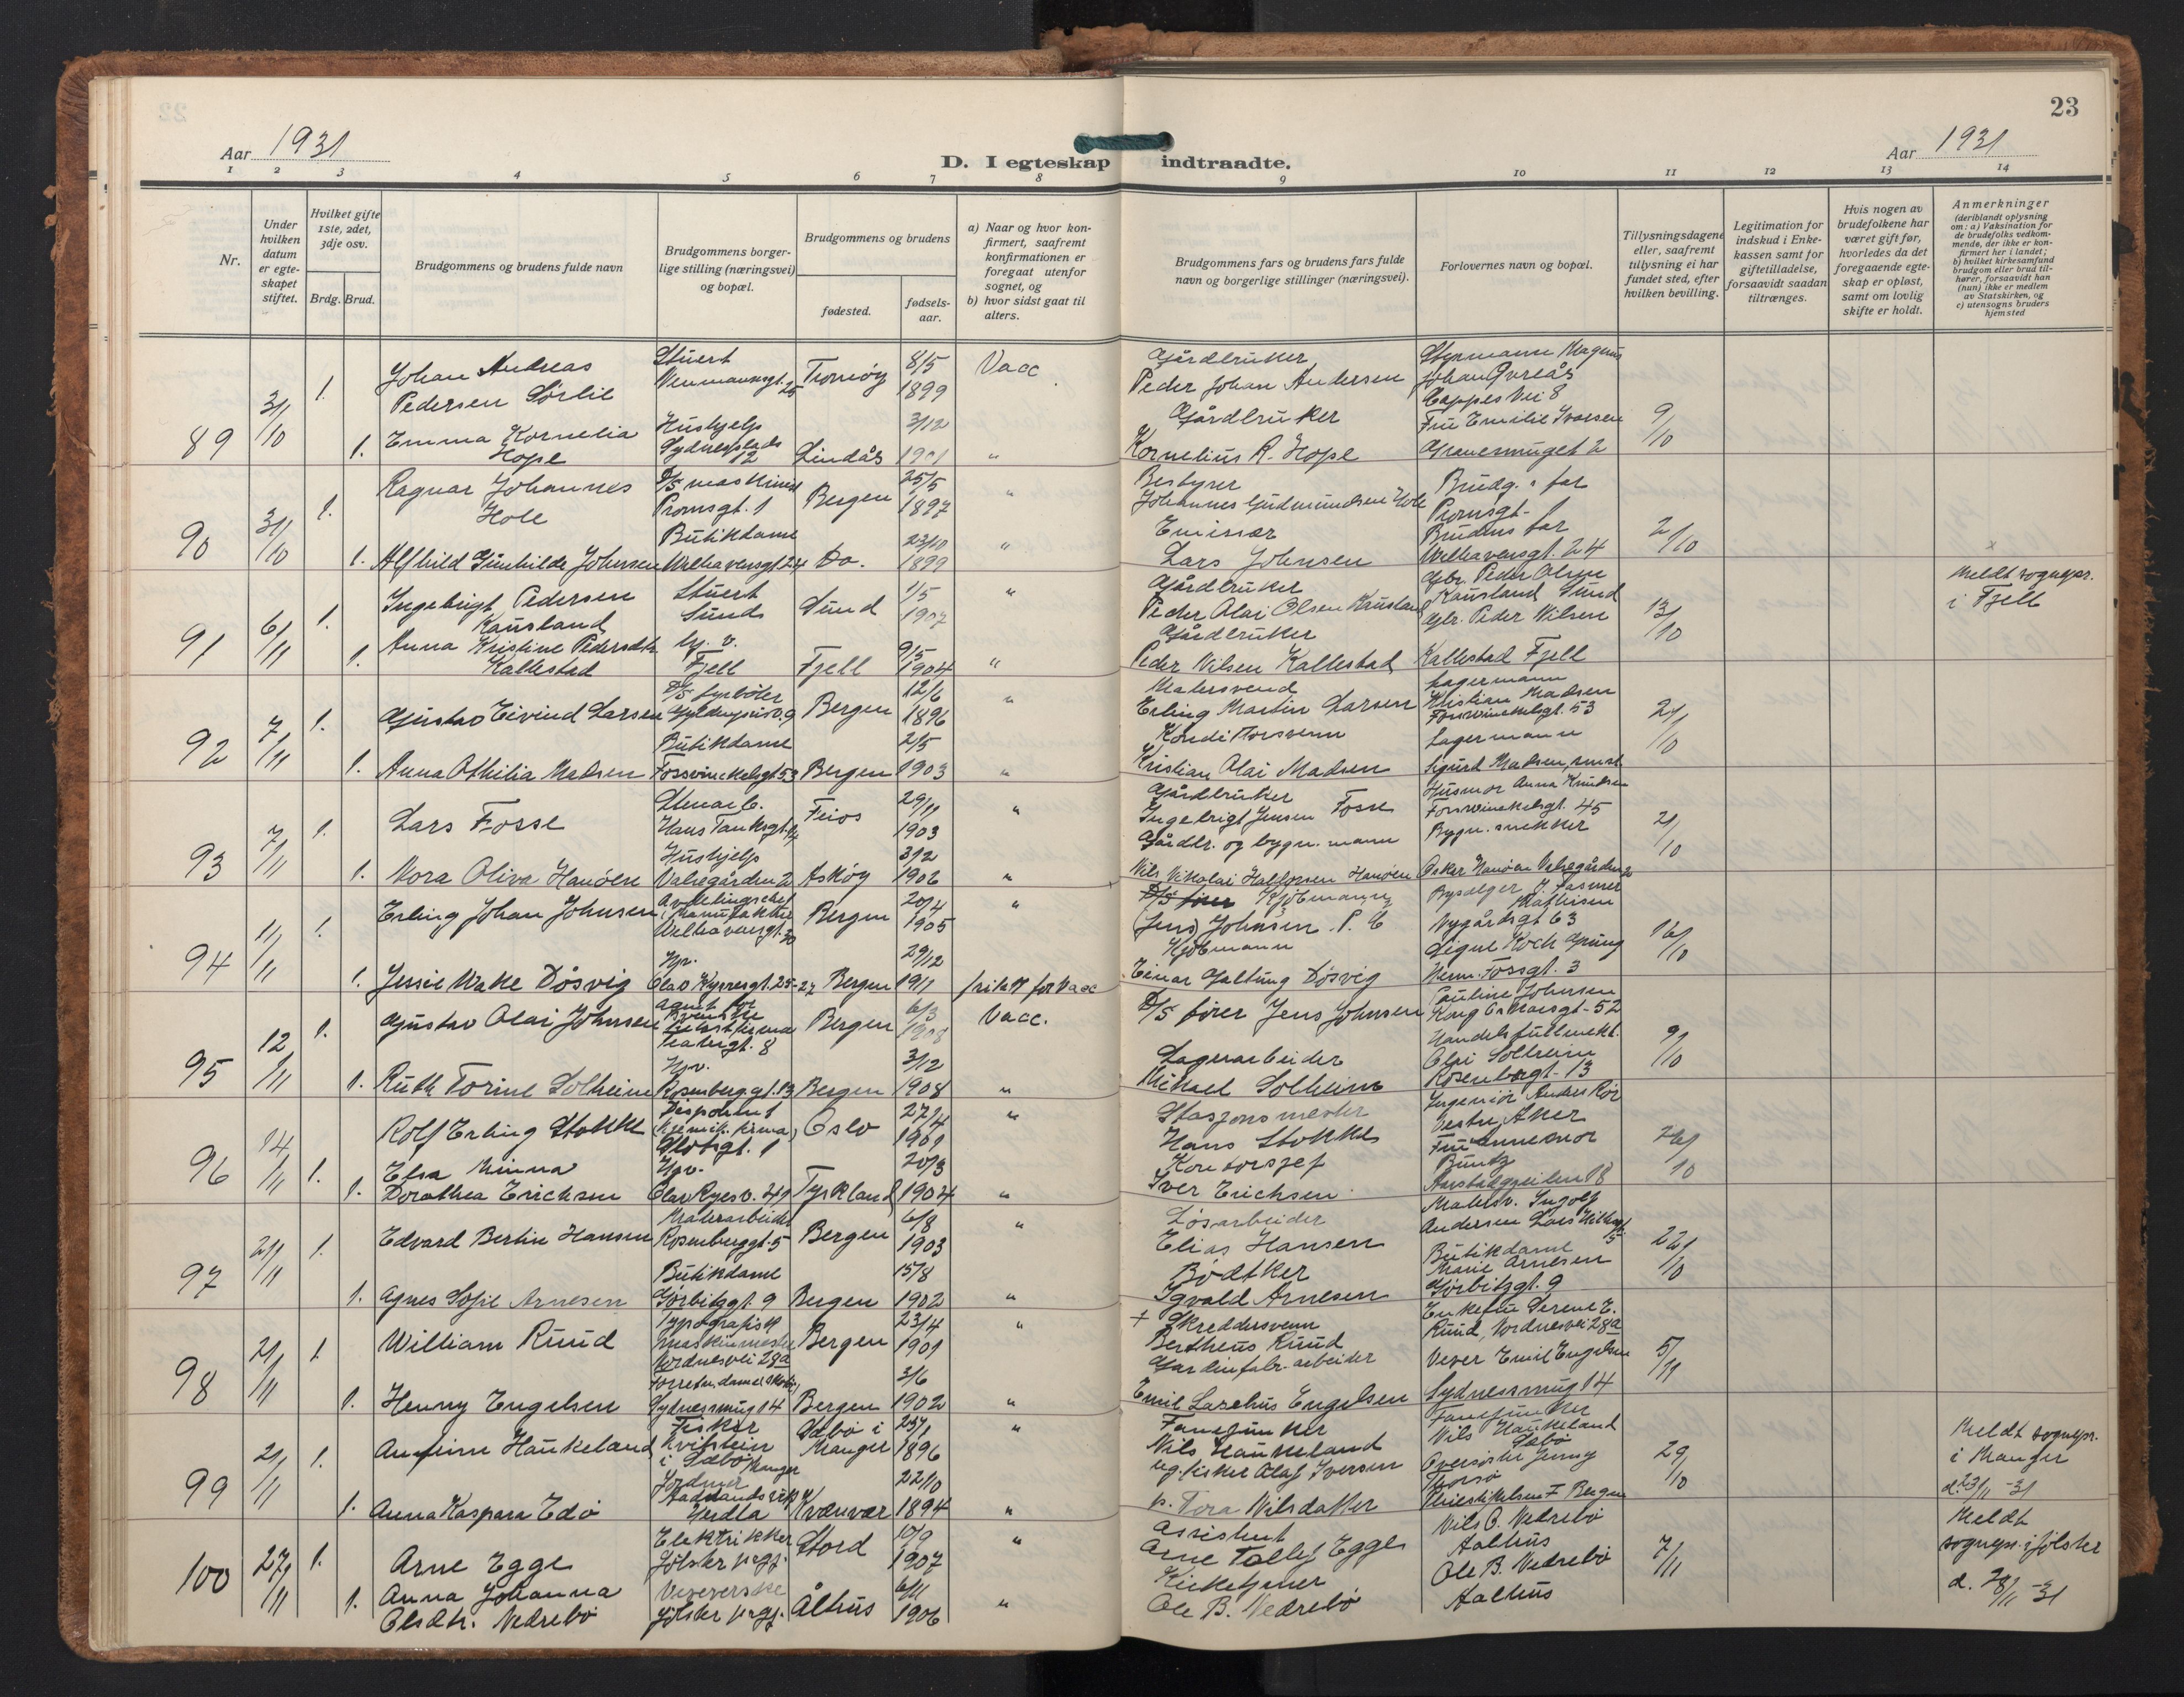 23
Aar 1931
D. I egteskap indtraadte.
Aar 1931
1 2 3 4 5 6 7 8 9 10 11 12 13 14
Nr.
Under hvilken datum er egteskapet stiftet.
Hvilket gifte 1ste, 2det, 3dje osv.
Brdg. Brud.
Brudgommens og brudens fulde navn
Brudgommens borgerlige stilling (næringsvei) og bopæl.
Brudgommens og brudens
fødested.
fødselsaar.
a) Naar og hvor konfirmert, saafremt konfirmationen er foregaat utenfor sognet, og
b) hvor sidst gaat til alters.
Brudgommens fars og brudens fars fulde navn og borgerlige stillinger (næringsvei).
Forlovernes navn og bopæl.
Tillysningsdagene eller, saafremt tillysning ei har fundet sted, efter hvilken bevilling.
Legitimation for indskud i Enkekassen samt for giftetilladelse, forsaavidt saadan tiltrænges.
Hvis nogen av brudefolkene har været gift før, hvorledes da det foregaaende egteskap er opløst, samt om lovlig skifte er holdt.
Anmerkninger
(deriblandt oplysning om: a) Vaksination for de brudefolks vedkommende, der ikke er konfirmert her i landet; b) hvilket kirkesamfund brudgom eller brud tilhører, forsaavidt han (hun) ikke er medlem av Statskirken, og c) utensogns bruders hjemsted
89 31/10 1. Johan Andreas Pedersen Sørlie Stuert 25 Tromöy 8/5 1899 Vacc Gårdbruker Peder Johan Andersen Styrmann Magnus Johan Øvreås Cappes Vei 8 9/10
1. Emma Kornelia Hope Hushjelp Sydnesplads 12 Lindås 3/12 1901 " Gårdbruker Kornelius R. Hope Fru Emilie Ivarsen 2
90 31/10 1. Ragnar Johannes Hole D/S maskinist Promsgt. 1 Bergen 25/5 1897 " Bestyrer Johannes Gudmundsen Hole Brudg.s far Promsgt. 1 2/10
1. Alfhild Gunhilde Johnsen Butikdame Welhavensgt 24 Do. 23/10 1899 " Emissær Lars Johnsen Brudens far Welhavensgt. 24
91 6/11 1. Ingebrigt Pedersen Kausland Stuert Sund Sund 1/5 1907 " Gårdbruker Peder Olai Olsen Kausland Gbr. Peder Olsen Kausland Sund 13/10 Meldt sognepr. i Fjell
1. Anna Kristine Pedersdtr Kallestad hj. v. Fjell Fjell 9/5 1904 " Gårdbruker Peder Nilsen Kallestad Gbr. Peder Nilsen Kallestad Fjell
92 7/11 1. Gustav Eivind Larsen D/S fyrböter Bergen 12/6 1896 " Malersvend Erling Martin Larsen Lagermann Kristian Madsen Fosswinckelsgt. 53 21/10
1. Anna Othilia Madsen Butikdame Fosswinckelsgt 53 Bergen 2/5 1903 " Konditorsvenn Kristian Olai Madsen Lagermann Sigurd Madsen, smst
93 7/11 1. Lars Fosse Hans Tanksgt. Feios 29/11 1903 " Gårdbruker Ingebrigt Jensen Fosse Husmor Anna Knudsen Fosswinckelsgt. 45 21/10
1. Nora Oliva Hanöen Hushjelp Valregården 2 Asköy 3/2 1902 " Gårdbr. og bygn. mann Nils Nikolai Halvorsen Hanöen Bygn. snekker Oskar Hanöen Valregården 2
94 11/11 1. Erling Johan Johnsen Avdelingschef i Manufaktur Welhavensgt. 30 Bergen 20/4 1905 " D/S fører Kjöbmann (Jens) Johnsen Mathisen Nygårdsgt 63 16/10
1. Jessie Wake Dösvig Hjv. Olav Kyrresgt. 25-27 Bergen 29/12 1911 fritatt for Vacc Kjöbmann Einar Galtung Dösvig Signe Koch Gpung Herm. Fossgt. 3
95 12/11 1. Gustav Olai Johnsen agent for Teatergt. 8 Bergen 6/3 1908 Vacc. D/S fører Jens Johnsen Pauline Johnsen Kong Oskarsgt. 52 9/10
1. Ruth Torine Solheim Hjv. Rosenberggt. 13 Bergen 3/12 1908 " Lagerarbeider Mikael Solheim Handelsfullmekt. Olai Solheim Rosenbergt. 13
96 14/11 1. Rolf Erling Stokke Disponent (Kjemik. firma) Slotsgt. 1 Oslo 27/4 1901 " Stasjonsmester Hans Stokke Ingeniör Vestre Aker 26/10
1. Elsa Minna Dorothea Erichsen Hjv. Olav Ryesv. 41 Tyskland 20/3 1904 " Kontorsjef Iver Erichsen Fru Buntz 18
97 21/11 1. Edvard Bertin Hansen Malerarbeider Rosenberggt. 5 Bergen 6/8 1903 " Lösarbeider Elias Hansen Malersv. Ingolf Andersen Lars Hillesgt. 15 22/10
1. Agnes Sofie Arnesen Butikdame Görbitzgt. 9 Bergen 15/8 1902 " Bödtker Sgvald Arnesen Butikdame Marie Arnesen Görbitzgt. 9
98 21/11 1 William Ruud Typografisk maskinmester Nordnesvei 28a Bergen 23/4 1901 " + Skreddersvenn Bertheus Ruud Enkefru Serene E. Ruud, Nordnesvei 28a 5/11
1. Henny Engelsen Sydnessmug 14 Bergen 3/6 1902 " Gardinfabr. arbeider Emil Engelsen Vever Emil Engelsen Sydnessmug 14
99 21/11 1. Anfinn Haukeland Fisker Kvitstein i Sæbö Manger Sæbö i Manger 25/1 1896 " Fanejunker Nils Haukeland Fanejunker Nils Haukeland Sæbö 29/10 Meldt sognepr. i Manger d. 23/11 -31
1. Anna Kaspara Edö Jordmor Herdla Kvænvær 22/10 1894 " ug. fisker Olaf Iversen p. Tora Nilsdatter Oversöster Jenny Thorsö Bergen
100 27/11 1. Arne Egge Elektrikker Jölster prgj. Stord 10/9 1907 " Assistent Arne Tollef Egge Nils O. Nedrebö Aalhus 7/11 Meldt sognepr. i Jölster d. 28/11 -31
1. Anna Johanna Olsdtr. Nedrebö Veverske Jölster prgj. Ålhus 6/11 1906 " Kirketjener Ole B. Nedrebö Ole B. Nedrebö Aalhus